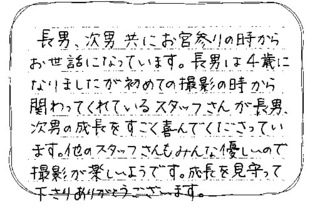 長男、次男共にお宮参りの時から
お世話になっています。長男は4歳に
なりましたが初めての撮影の時から
関わってくれているスタッフさんが長男、
次男の成長をすごく喜んでくださってい
ます。他のスタッフさんもみんな優しいので
撮影が楽しいようです。成長を見守って
下さりありがとうございます。